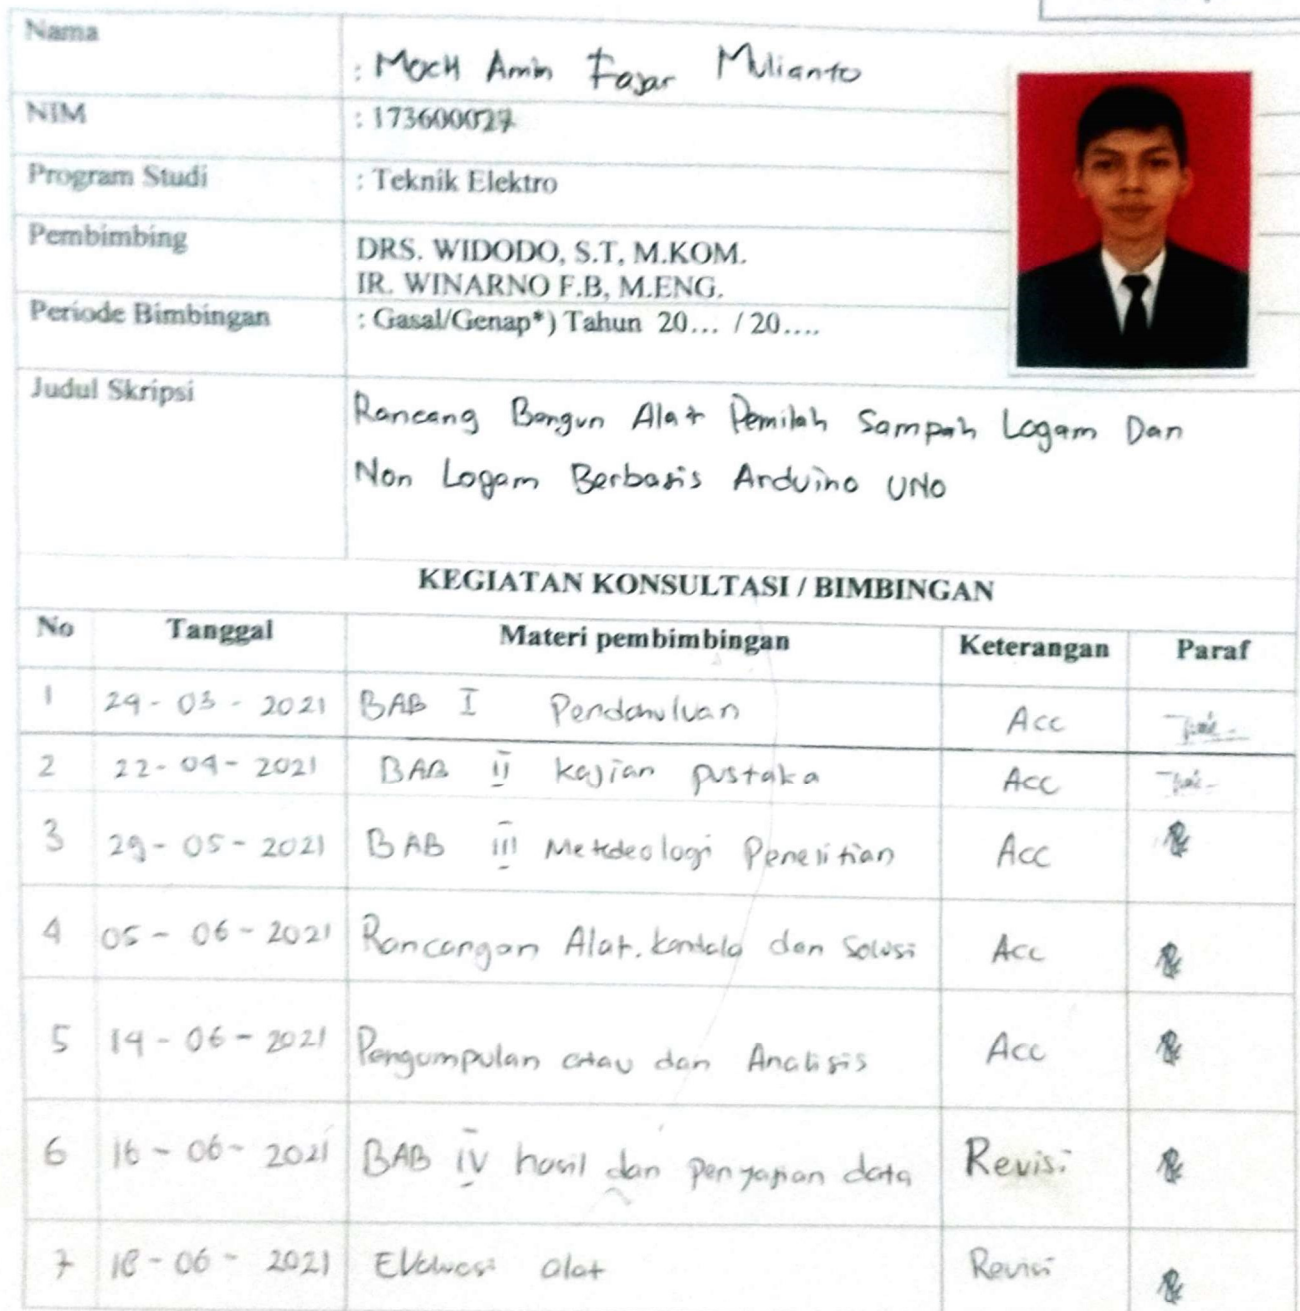 Nama : Moch Amin Fajar Mulianto
NIM : 173600027
Program Studi : Teknik Elektro
Pembimbing DRS. WIDODO, S.T, M.KOM.
IR. WINARNO F.B, M.ENG.
Periode Bimbingan : Gasal/Genap*) Tahun 20... / 20....
Judul Skripsi Rancang Bangun Alat Pemilah Sampah Logam Dan
Non Logam Berbasis Arduino UNO
KEGIATAN KONSULTASI / BIMBINGAN
No Tanggal Materi pembimbingan Keterangan Paraf
1 29-03-2021 BAB I Pendahuluan Acc
2 22-04-2021 BAB II kajian pustaka Acc
3 29-05-2021 BAB III Metdeologi Penelitian Acc
4 05-06-2021 Rancangan Alat, kendala dan Solusi Acc
5 14-06-2021 Pengumpulan dan Analisis Acc
6 16-06-2021 BAB IV hasil dan penyajian data Revisi
7 18-06-2021 Evaluasi alat Revisi